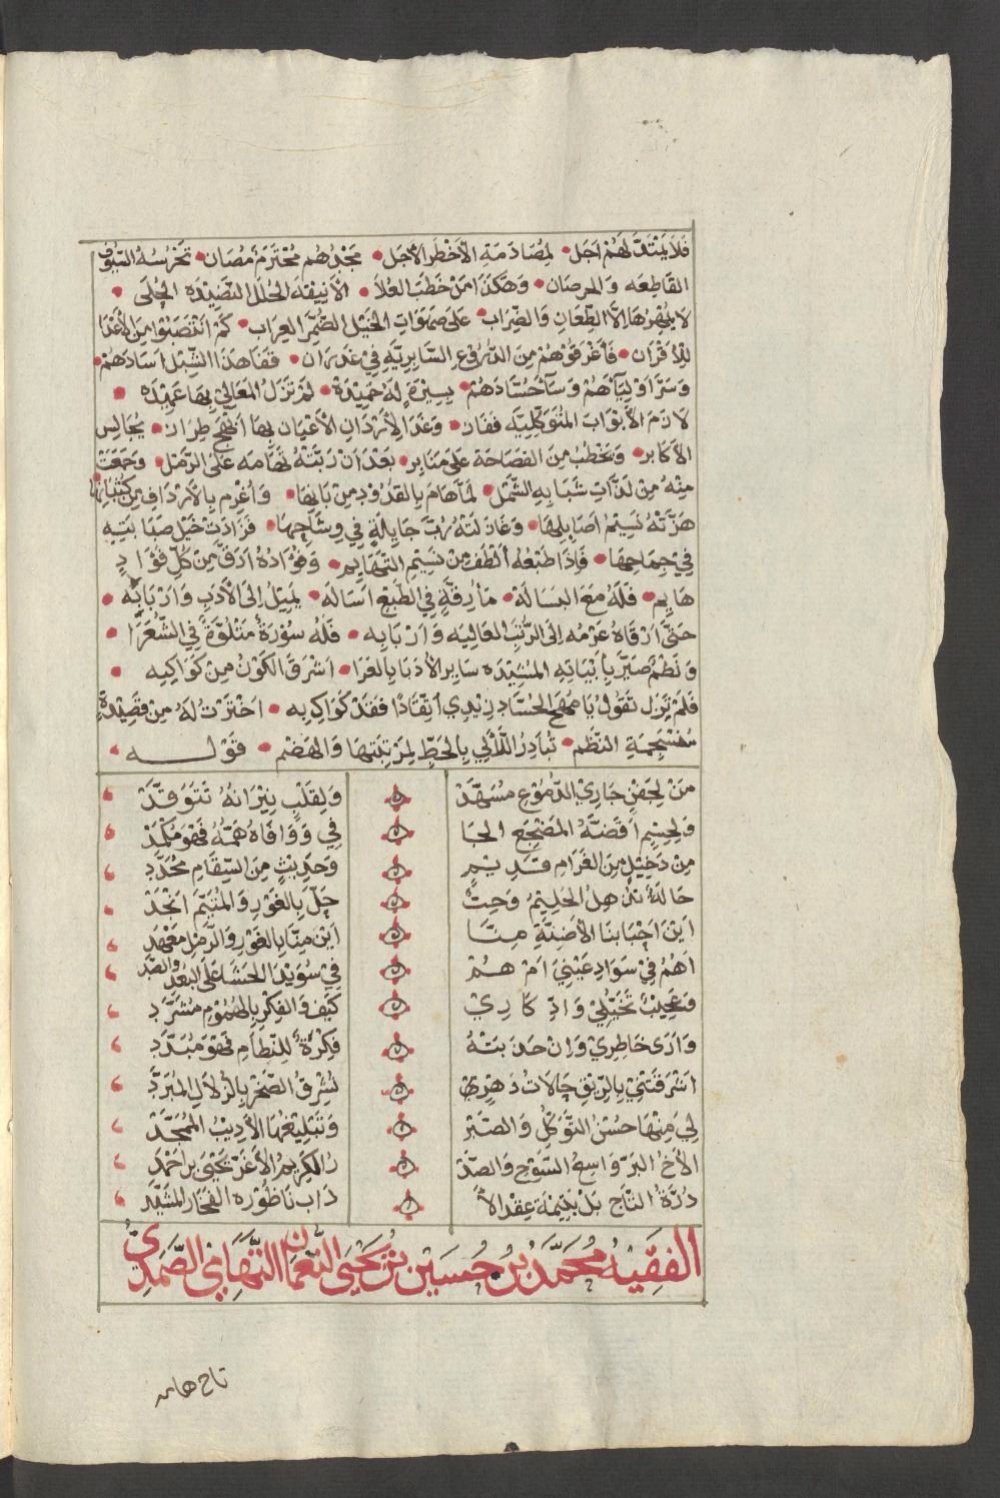 فَلَا يَمْتَدُّ لَهُمْ اَجَل • لِمُصَادَمَةِ الْاَخْطَرِ الْاَجَل • مَجْدُهُم مُحْتَرَم مُصَان • تَحْرُسُهُ السُّيُوْف
القَاطِعَه وَالمُرصَان • وَهٰكَذَا مَنْ خَطَبَ العُلَا • الْاَنِيْقَه الحُلَل النَّضِيْدَه الحُلَى •
لا يُمْهِرُهَا اِلَّا الطِّعَانِ وَالضِّرَاب • عَلَى صَهَوَاتِ الخَيْلِ الضُّمَّرِ العِرَاب • كَمْ انْتَصَبُوا مِنَ الْاَعْدَا
لِلْاَقْرَان • فَاَغْرَقُوْهُمْ مِنَ الدُّرُوْعِ السَّابِرِيَّه فِيْ غَدْرَان • فَقَفَا هٰذَا الشِّبْل اٰسَادَهُمْ •
وَسَرَّ اَوْلِيَآهُمْ وَسَآ حُسَّادَهُمْ • بِسِيْرَةٍ لَهُ حَمِيْدَةْ • لَمْ تَزَلُ المَعَالِيْ بِهَا عَمِيْدَه •
لَازَمَ الْاَبْوَابَ المُتَوَكِّلِيَّه فَفَاز • وَغَدَا لِاَرْدَانِ الْاَعْيَانِ بِهَا اَبْهَجَ طِرَاز • يُجَالِس
الْاَكَابِر • وَيَخْطُبُ مِنَ الفَصَاحَة عَلَى مَنَابِر • بَعْدَ اَنْ رَبَّتْهُ تَهَامَه عَلَى الرَّمْل • وَجَمَعَتْ
مِنْهُ مِنْ لَذَّاتِ شَبَابِهِ الشَّمْل • لَمَّا هَامَ بِالقُدُوْدِ مِنْ بَانِهَا • وَاُغْرِم بِالْاَرْدَافِ مِنْ كُثْبَانِهَا
هَزَّتْهُ نَسِيْمُ اَصَايِلِهَا • وَغَازَلَتْهُ رُبَّ جَايِلَةٍ فِي وِشَاحِهَا • فَزَادَتْ خَيْل صَبَابَتِه
فِيْ جِمَاحِهَا • فَاِذَا طَبْعُهُ اَلْطَفُ مِنْ نَسِيْمِ التَّهَايِم • وَفُؤَادُهُ اَدَقُّ مِنْ كُلِّ فُؤَادٍ
هَايِم • فَلَهُ مَعَ البَسَالَهْ • مَا رِقَّةٍ فِي الطَّبْعِ اَسَالَه • يَمِيْلُ اِلَى الْاَدَبِ وَاَرْبَابِهْ •
حَتَّى اَرْقَاهُ عَزْمُه اِلَى الرُّتَبِ العَالِيَه وَاَرْبَابِه • فَلَهُ سُوْرَةُ مَتْلُوَّةٌ فِي الشُّعَرَا •
وَنَظْمٌ صَيَّرَ بِاَبْيَاتِهِ المُشَيَّدَه سَايِرَ الْاُدَبَا بِالعَرَا • اَشْرَقَ الكَوْنُ مِنْ كَوَاكِبِه •
فَلَمْ يَزَل تَقُوْلُ يَا مُهَجَ الحُسَّادِ زِيْدِي اتِّقَادًا فَقَدْ كَوَاكِ بِه • اخْتَرْتُ لَهُ مِنْ قَصِيْدَةٍ
مُنْسَجِمَةِ النَّظْم • تُبَادِرُ اللَّآلِي بِالحَطِّ لِمَرْتَبَتِهَا وَالهَضْم • قَوْلـــــه
مَنْ لِجَفْنٍ جَارِيْ الدُّمُوْعِ مُسَهَّدْ ه وَلِقَلْبٍ نِيْرَانُهُ تَتَوَقَّدْ
وَلِجِسْمٍ اَقَضَّهُ المَضْجَع الحَا ه فِي وَوَافَاهُ هَمُّهُ فَهْوَ مُكْمَدْ
مِنْ دَخِيْلٍ مِنَ الغَرَامِ قَدِيْمٍ ه وَحَدِيْثٍ مِنَ السِّقَامِ مُجَدَّدِ
حَالَهُ تُذْهِلُ الحَلِيْمَ وَحِبٌّ ه حَلَّ بِالغَوْرِ وَالمُتَيَّمُ اَنْجَدْ
اَيْنَ اَحْبَابنَا الْاَضِنَّةِ مِنَّا ه اَيْنَ مِنَّا بِالغَوْرِ وَالرَّمْلِ مَعْهَد
اَهُمُ فِيْ سَوَادِ عَيْنِيَ اَمْ هُمْ ه فِيْ سُوَيْدَا الحَشَا عَلَى البُعْدِ وَالصَّد
وَعَجِيْبٌ تَخَيُّلِيْ وَادِّكَارِيْ ه كَيْفَ وَالفِكْرِ بِالهُمُوْمِ مُشَرَّد
وَاَرَى خَاطِرِيْ وَاِنْ حَدَبَتْهُ ه فِكْرَةُ لِلنِّظَامِ فَهْوَ مُبَدَّد
اَشْرَقَتْنِيْ بِالرِّيْقِ حَالَاتُ دَهْرِيْ ه تُشْرِقُ الصَّخْرَ بِالزُّلَالِ المُبَرَّد
لِيَ مِنْهَا حُسْنُ التَّوَكُّلِ وَالصَّبْر ه وَتَبْلِيْغُهَا الْاَدِيْبُ المُمَجَّدْ
الْاَخُ البَرّ وَاسِعُ السُّوْحِ وَالصَّدْ ه رِ الكَرِيْمُ الْاَغَرّ يَحْيَى بن احْمَدْ
دُرَّةُ التَّاجِ بَلْ يَتِيْمَة عِقْدِ الْاٰ ه دَابِ نَاظُوْرَه الفَخَارِ المُشَيَّد
الفَقِيْهُ مُحَمَّدُ بْنُ حُسَيْن بْنُ يَحْيَى النُّعْمَان التِّهَامِيْ الضَّمَدِيُّ